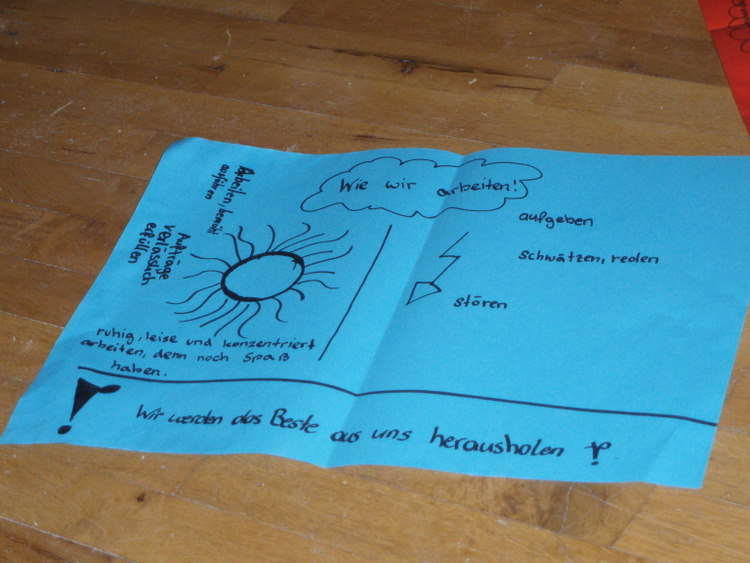 Wie wir arbeiten!
Arbeiten, bemüht
ausführen
Aufträge
verlässlich
erfüllen
ruhig, leise und konzentriert
arbeiten, denn noch Spaß
haben.
aufgeben
schwätzen, reden
stören
! Wir werden das Beste aus uns herausholen !